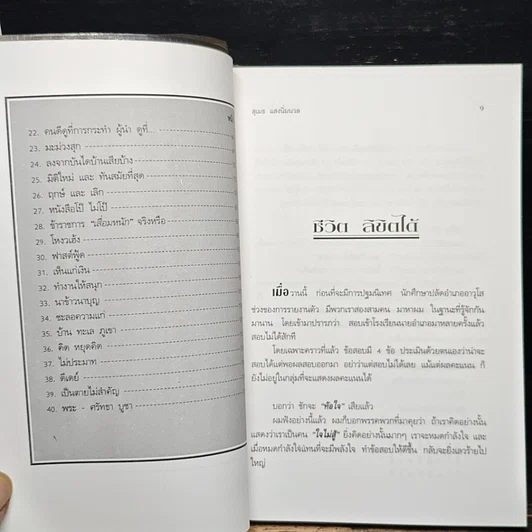 22. คนดีดูที่การกระทำ ผู้นำ ดูที่...
23. มะม่วงสุก
24. ลงจากบันไดบ้านเสียบ้าง
25. มิติใหม่ และ ทันสมัยที่สุด
26. ฤกษ์ และ เลิก
27. หนังสือโป๊ ไม่โป๊
28. ข้าราชการ "เสื่อมหนัก" จริงหรือ
29. โหงวเฮ้ง
30. ฟาสต์ฟู้ด
31. เห็นแก่เงิน
32. ทำงานให้สนุก
33. นาข้าวนาบุญ
34. ชะลอความแก่
35. บ้าน ทะเล ภูเขา
36. คิด หยุดคิด
37. ไม่ประมาท
38. ดีเดย์
39. เป็นตายไม่สำคัญ
40. พระ - ศรัทธา บูชา
สุเมธ แสงนิ่มนวล
9
ชีวิต ลิขิตได้
เมื่อวานนี้ ก่อนที่จะมีการปฐมนิเทศ นักศึกษาปลัดอำเภออาวุโส
ช่วงของการรายงานตัว มีพวกเราสองสามคน มาหาผม ในฐานะที่รู้จักกัน
มานาน โดยเข้ามาปรารภว่า สอบเข้าโรงเรียนนายอำเภอมาหลายครั้งแล้ว
สอบไม่ได้สักที
โดยเฉพาะคราวที่แล้ว ข้อสอบมี 4 ข้อ ประเมินด้วยตนเองว่าน่าจะ
สอบได้แต่พอผลสอบออกมา อย่าว่าแต่สอบไม่ได้เลย แม้แต่ผลคะแนน ก็
ยังไม่อยู่ในกลุ่มที่จะแสดงผลคะแนนได้
บอกว่า ชักจะ "ท้อใจ" เสียแล้ว
ผมฟังอย่างนี้แล้ว ผมก็บอกพรรคพวกที่มาคุยว่า ถ้าเราคิดอย่างนั้น
แสดงว่าเราเป็นคน "ใจไม่สู้" ยิ่งคิดอย่างนั้นมากๆ เราจะหมดกำลังใจ และ
เมื่อหมดกำลังใจแทนที่จะมีพลังใจ ทำข้อสอบให้ดีขึ้น กลับจะยิ่งเลวร้ายไป
ใหญ่